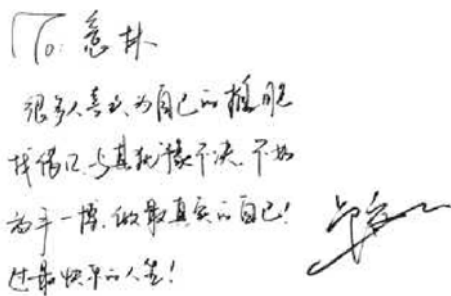 To: 意朴
很多人喜欢为自己的懦弱
找借口,与其犹豫不决,不如
放手一博,做最真实的自己!
过最快乐的人生!